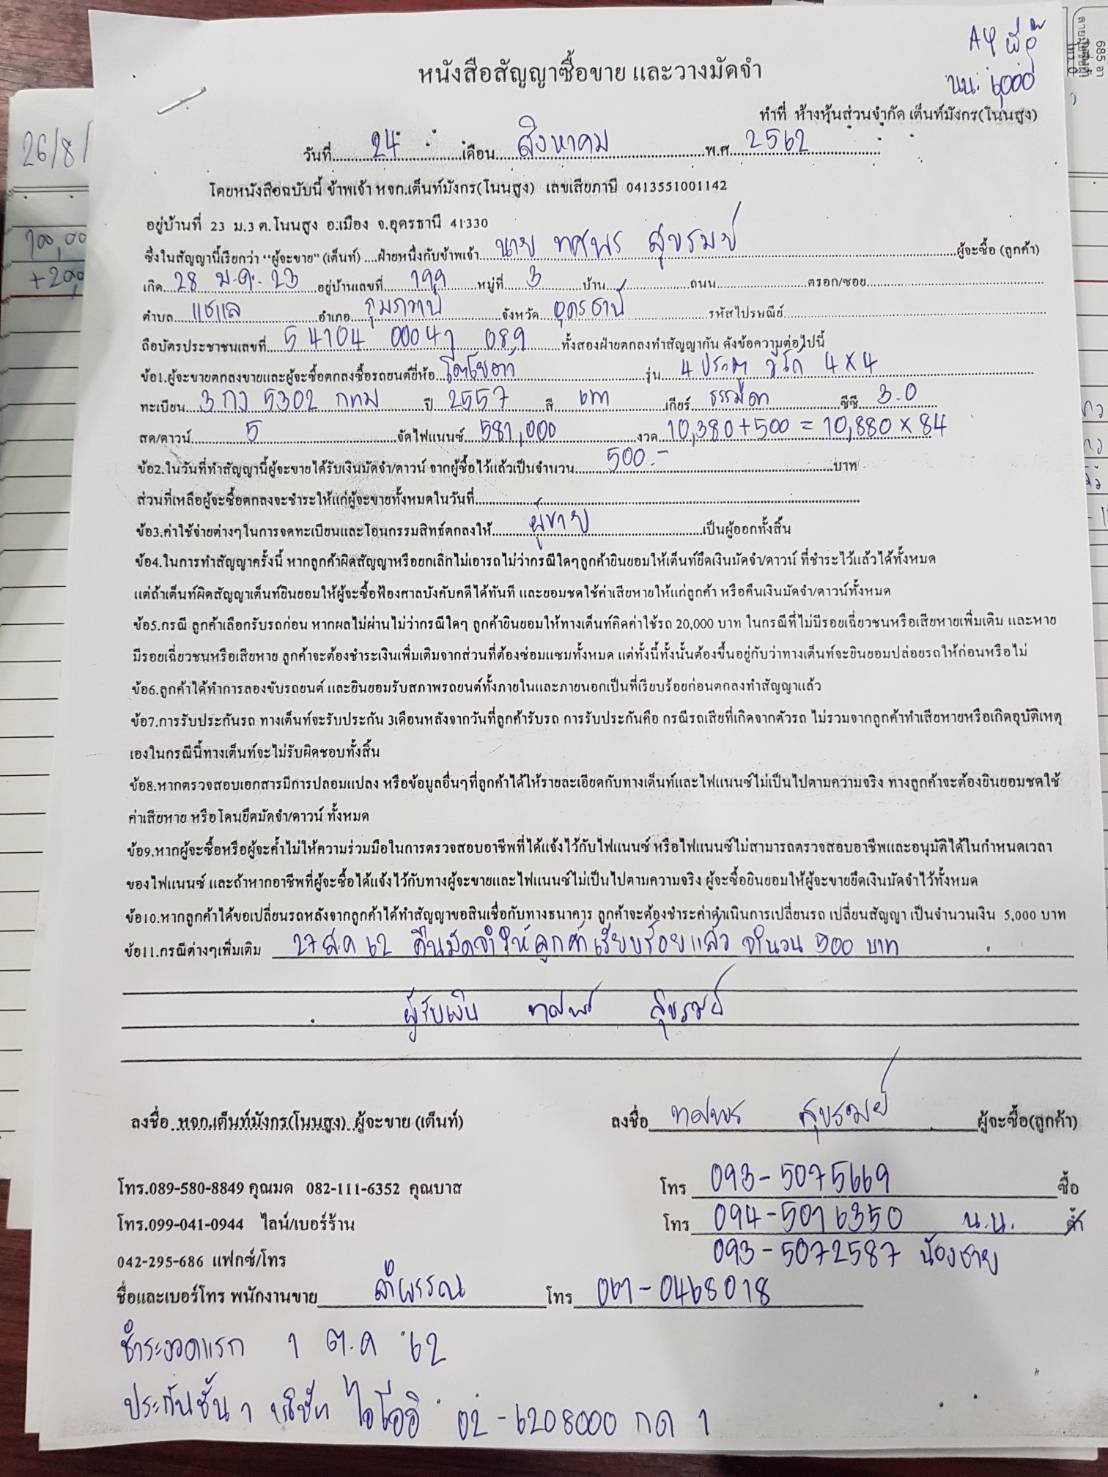 นน. 6,000
หนังสือสัญญาซื้อขาย และวางมัดจำ
ทำที่ ห้างหุ้นส่วนจำกัด เต็นท์มังกร(โนนสูง)
26/8/
วันที่ 24 เดือน สิงหาคม พ.ศ. 2562
โดยหนังสือฉบับนี้ ข้าพเจ้า หจก.เต็นท์มังกร(โนนสูง) เลขเสียภาษี 0413551001142
อยู่บ้านที่ 23 ม.3 ต.โนนสูง อ.เมือง จ.อุดรธานี 41330
ซึ่งในสัญญานี้เรียกว่า "ผู้จะขาย" (เต็นท์) ....ฝ่ายหนึ่งกับข้าพเจ้า นาย ทศพร สุขรมย์ ผู้จะซื้อ (ลูกค้า)
เกิด 28 ม.ค. 23 อยู่บ้านเลขที่ 199 หมู่ที่ 3 บ้าน ถนน ตรอก/ซอย
ตำบล แชแล อำเภอ กุมภวาปี จังหวัด อุดรธานี รหัสไปรษณีย์
ถือบัตรประชาชนเลขที่ 5 4104 00047 089 ทั้งสองฝ่ายตกลงทำสัญญากัน ดังข้อความต่อไปนี้
ข้อ1.ผู้จะขายตกลงขายและผู้จะซื้อตกลงซื้อรถยนต์ยี่ห้อ โตโยต้า รุ่น 4 ประตู วีโก้ 4x4
ทะเบียน 3 กว 5302 กทม ปี 2557 สี เทา เกียร์ ธรรมดา ซีซี 3.0
สด/ดาวน์ 5 จัดไฟแนนซ์ 581,000 งวด 10,380+500 = 10,880 x 84
ข้อ2.ในวันที่ทำสัญญานี้ผู้จะขายได้รับเงินมัดจำ/ดาวน์ จากผู้ซื้อไว้แล้วเป็นจำนวน 500.- บาท
ส่วนที่เหลือผู้จะซื้อตกลงจะชำระให้แก่ผู้จะขายทั้งหมดในวันที่
ข้อ3.ค่าใช้จ่ายต่างๆในการจดทะเบียนและโอนกรรมสิทธ์ตกลงให้ ผู้ขาย เป็นผู้ออกทั้งสิ้น
ข้อ4.ในการทำสัญญาครั้งนี้ หากลูกค้าผิดสัญญาหรือยกเลิกไม่เอารถไม่ว่ากรณีใดๆลูกค้ายินยอมให้เต็นท์ยึดเงินมัดจำ/ดาวน์ ที่ชำระไว้แล้วได้ทั้งหมด
แต่ถ้าเต็นท์ผิดสัญญาเต็นท์ยินยอมให้ผู้จะซื้อฟ้องศาลบังคับคดีได้ทันที และยอมชดใช้ค่าเสียหายให้แก่ลูกค้า หรือคืนเงินมัดจำ/ดาวน์ทั้งหมด
ข้อ5.กรณี ลูกค้าเลือกรับรถก่อน หากผลไม่ผ่านไม่ว่ากรณีใดๆ ลูกค้ายินยอมให้ทางเต็นท์คิดค่าใช้รถ 20,000 บาท ในกรณีที่ไม่มีรอยเฉี่ยวชนหรือเสียหายเพิ่มเติม และหาย
มีรอยเฉี่ยวชนหรือเสียหาย ลูกค้าจะต้องชำระเงินเพิ่มเติมจากส่วนที่ต้องซ่อมแซมทั้งหมด แต่ทั้งนี้ทั้งนั้นต้องขึ้นอยู่กับว่าทางเต็นท์จะยินยอมปล่อยรถให้ก่อนหรือไม่
ข้อ6.ลูกค้าได้ทำการลองขับรถยนต์ และยินยอมรับสภาพรถยนต์ทั้งภายในและภายนอกเป็นที่เรียบร้อยก่อนตกลงทำสัญญาแล้ว
ข้อ7.การรับประกันรถ ทางเต็นท์จะรับประกัน 3เดือนหลังจากวันที่ลูกค้ารับรถ การรับประกันคือ กรณีรถเสียที่เกิดจากตัวรถ ไม่รวมจากลูกค้าทำเสียหายหรือเกิดอุบัติเหตุ
เองในกรณีนี้ทางเต็นท์จะไม่รับผิดชอบทั้งสิ้น
ข้อ8.หากตรวจสอบเอกสารมีการปลอมแปลง หรือข้อมูลอื่นๆที่ลูกค้าได้ให้รายละเอียดกับทางเต็นท์และไฟแนนซ์ไม่เป็นไปตามความจริง ทางลูกค้าจะต้องยินยอมชดใช้
ค่าเสียหาย หรือโดนยึดมัดจำ/ดาวน์ ทั้งหมด
ข้อ9.หากผู้จะซื้อหรือผู้จะค้ำไม่ให้ความร่วมมือในการตรวจสอบอาชีพที่ได้แจ้งไว้กับไฟแนนซ์ หรือไฟแนนซ์ไม่สามารถตรวจสอบอาชีพและอนุมัติได้ในกำหนดเวลา
ของไฟแนนซ์ และถ้าหากอาชีพที่ผู้จะซื้อได้แจ้งไว้กับทางผู้จะขายและไฟแนนซ์ไม่เป็นไปตามความจริง ผู้จะซื้อยินยอมให้ผู้จะขายยึดเงินมัดจำไว้ทั้งหมด
ข้อ10.หากลูกค้าได้ขอเปลี่ยนรถหลังจากลูกค้าได้ทำสัญญาขอสินเชื่อกับทางธนาคาร ลูกค้าจะต้องชำระค่าดำเนินการเปลี่ยนรถ เปลี่ยนสัญญา เป็นจำนวนเงิน 5,000 บาท
ข้อ11.กรณีต่างๆเพิ่มเติม 27 ส.ค 62 คืนมัดจำให้ลูกค้าเรียบร้อยแล้ว จำนวน 500 บาท
ผู้รับเงิน ทศพร สุขรมย์
ลงชื่อ หจก.เต็นท์มังกร(โนนสูง) ผู้จะขาย (เต็นท์) ลงชื่อ ทศพร สุขรมย์ ผู้จะซื้อ(ลูกค้า)
โทร.089-580-8849 คุณมด 082-111-6352 คุณบาส โทร 093-5075669 ซื้อ
โทร.099-041-0944 ไลน์/เบอร์ร้าน โทร 094-5016350 น.น. ค้ำ
042-295-686 แฟกซ์/โทร 093-5072587 น้องชาย
ชื่อและเบอร์โทร พนักงานขาย ลำพรรณ โทร 061-0468018
ชำระงวดแรก 1 ต.ค 62
ประกันชั้น 1 บริษัท ไอโออิ 02-6208000 กด 1